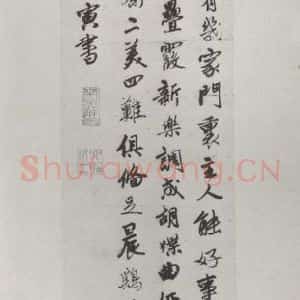 有幾家門裏主人能好事
疊霞新樂調成胡蝶曲
二美四難俱備足晨鷄
寅書
Shufawang.CN